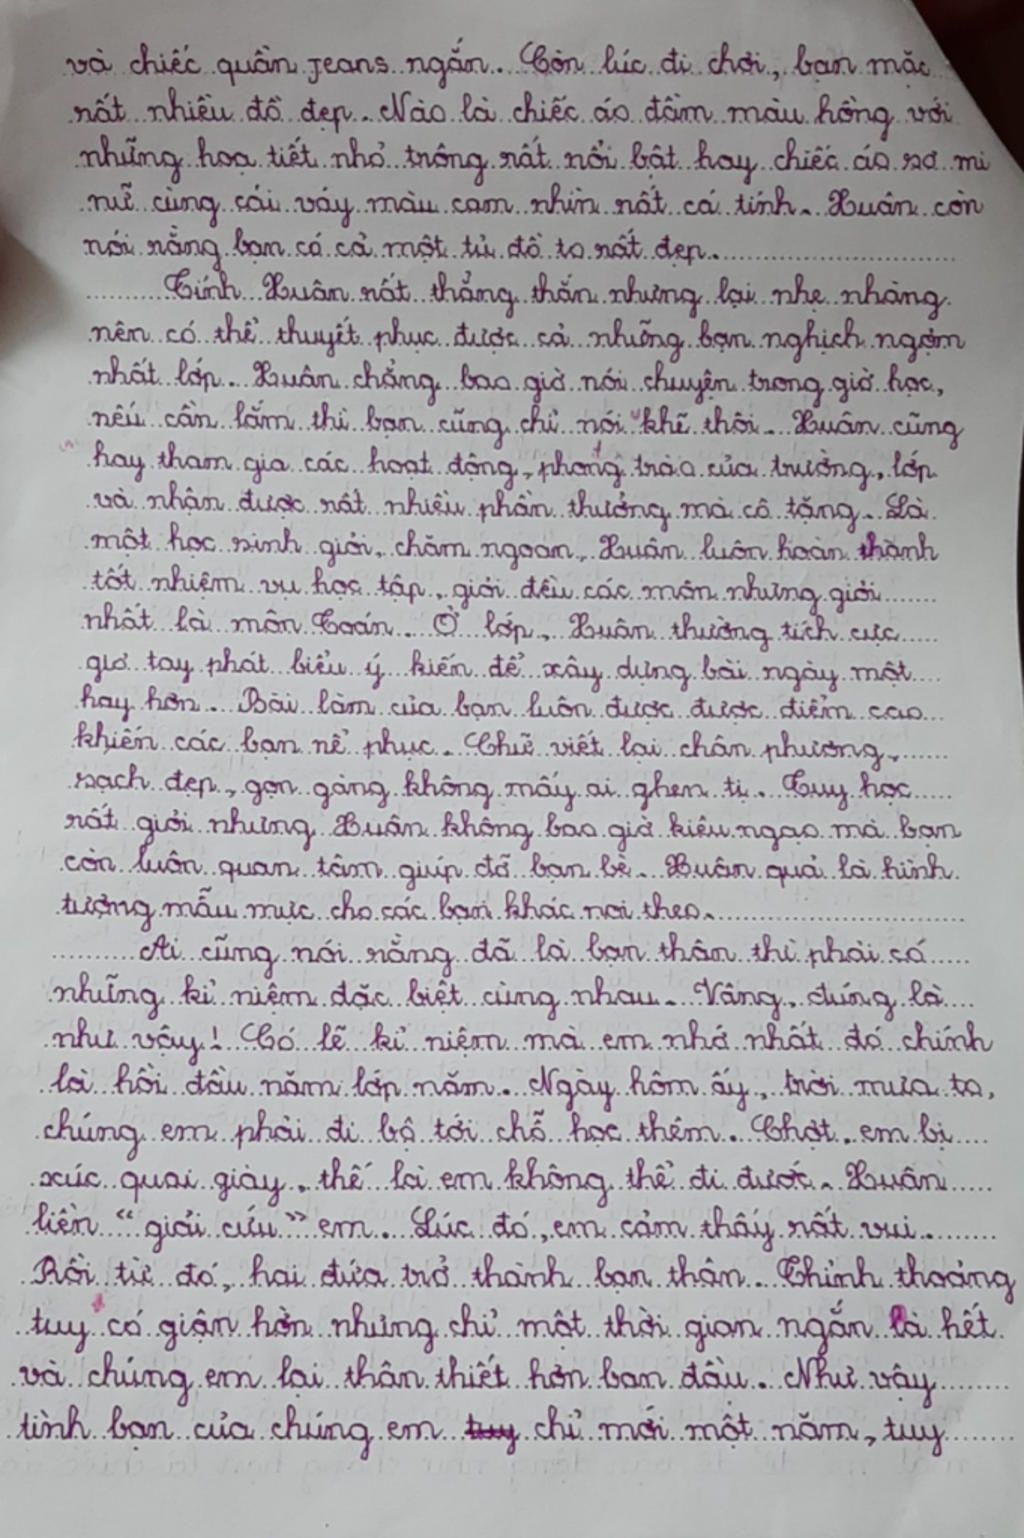 và chiếc quần jeans ngắn. Còn lúc đi chơi, bạn mặc
rất nhiều đồ đẹp. Nào là chiếc áo đầm màu hồng với
những hoạ tiết nhỏ trông rất nổi bật hay chiếc áo sơ mi
nữ cùng cái váy màu cam nhìn rất cá tính. Xuân còn
nói rằng bạn có cả một tủ đồ to rất đẹp.
Tính Xuân rất thẳng thắn nhưng lại nhẹ nhàng
nên có thể thuyết phục được cả những bạn nghịch ngợm
nhất lớp. Xuân chẳng bao giờ nói chuyện trong giờ học,
nếu cần lắm thì bạn cũng chỉ nói khẽ thôi. Xuân cũng
hay tham gia các hoạt động, phong trào của trường, lớp
và nhận được rất nhiều phần thưởng mà cô tặng. Là
một học sinh giỏi, chăm ngoan, Xuân luôn hoàn thành
tốt nhiệm vụ học tập, giỏi đều các môn nhưng giỏi
nhất là môn Toán. Ở lớp, Xuân thường tích cực
giơ tay phát biểu ý kiến để xây dựng bài ngày một
hay hơn. Bài làm của bạn luôn được được điểm cao
khiến các bạn nể phục. Chữ viết lại chân phương,
sạch đẹp, gọn gàng không mấy ai ghen tị. Tuy học
rất giỏi nhưng Xuân không bao giờ kiêu ngạo mà bạn
còn luôn quan tâm giúp đỡ bạn bè. Xuân quả là hình
tượng mẫu mực cho các bạn khác noi theo.
Ai cũng nói rằng đã là bạn thân thì phải có
những kỉ niệm đặc biệt cùng nhau. Vâng, đúng là
như vậy! Có lẽ kỉ niệm mà em nhớ nhất đó chính
là hồi đầu năm lớp năm. Ngày hôm ấy, trời mưa to,
chúng em phải đi bộ tới chỗ học thêm. Chợt em bị
xúc quai giày, thế là em không thể đi được. Xuân
liền "giải cứu" em. Lúc đó, em cảm thấy rất vui.
Rồi từ đó, hai đứa trở thành bạn thân. Thỉnh thoảng
tuy có giận hờn nhưng chỉ một thời gian ngắn là hết
và chúng em lại thân thiết hơn ban đầu. Như vậy
tình bạn của chúng em tuy chỉ mới một năm, tuy